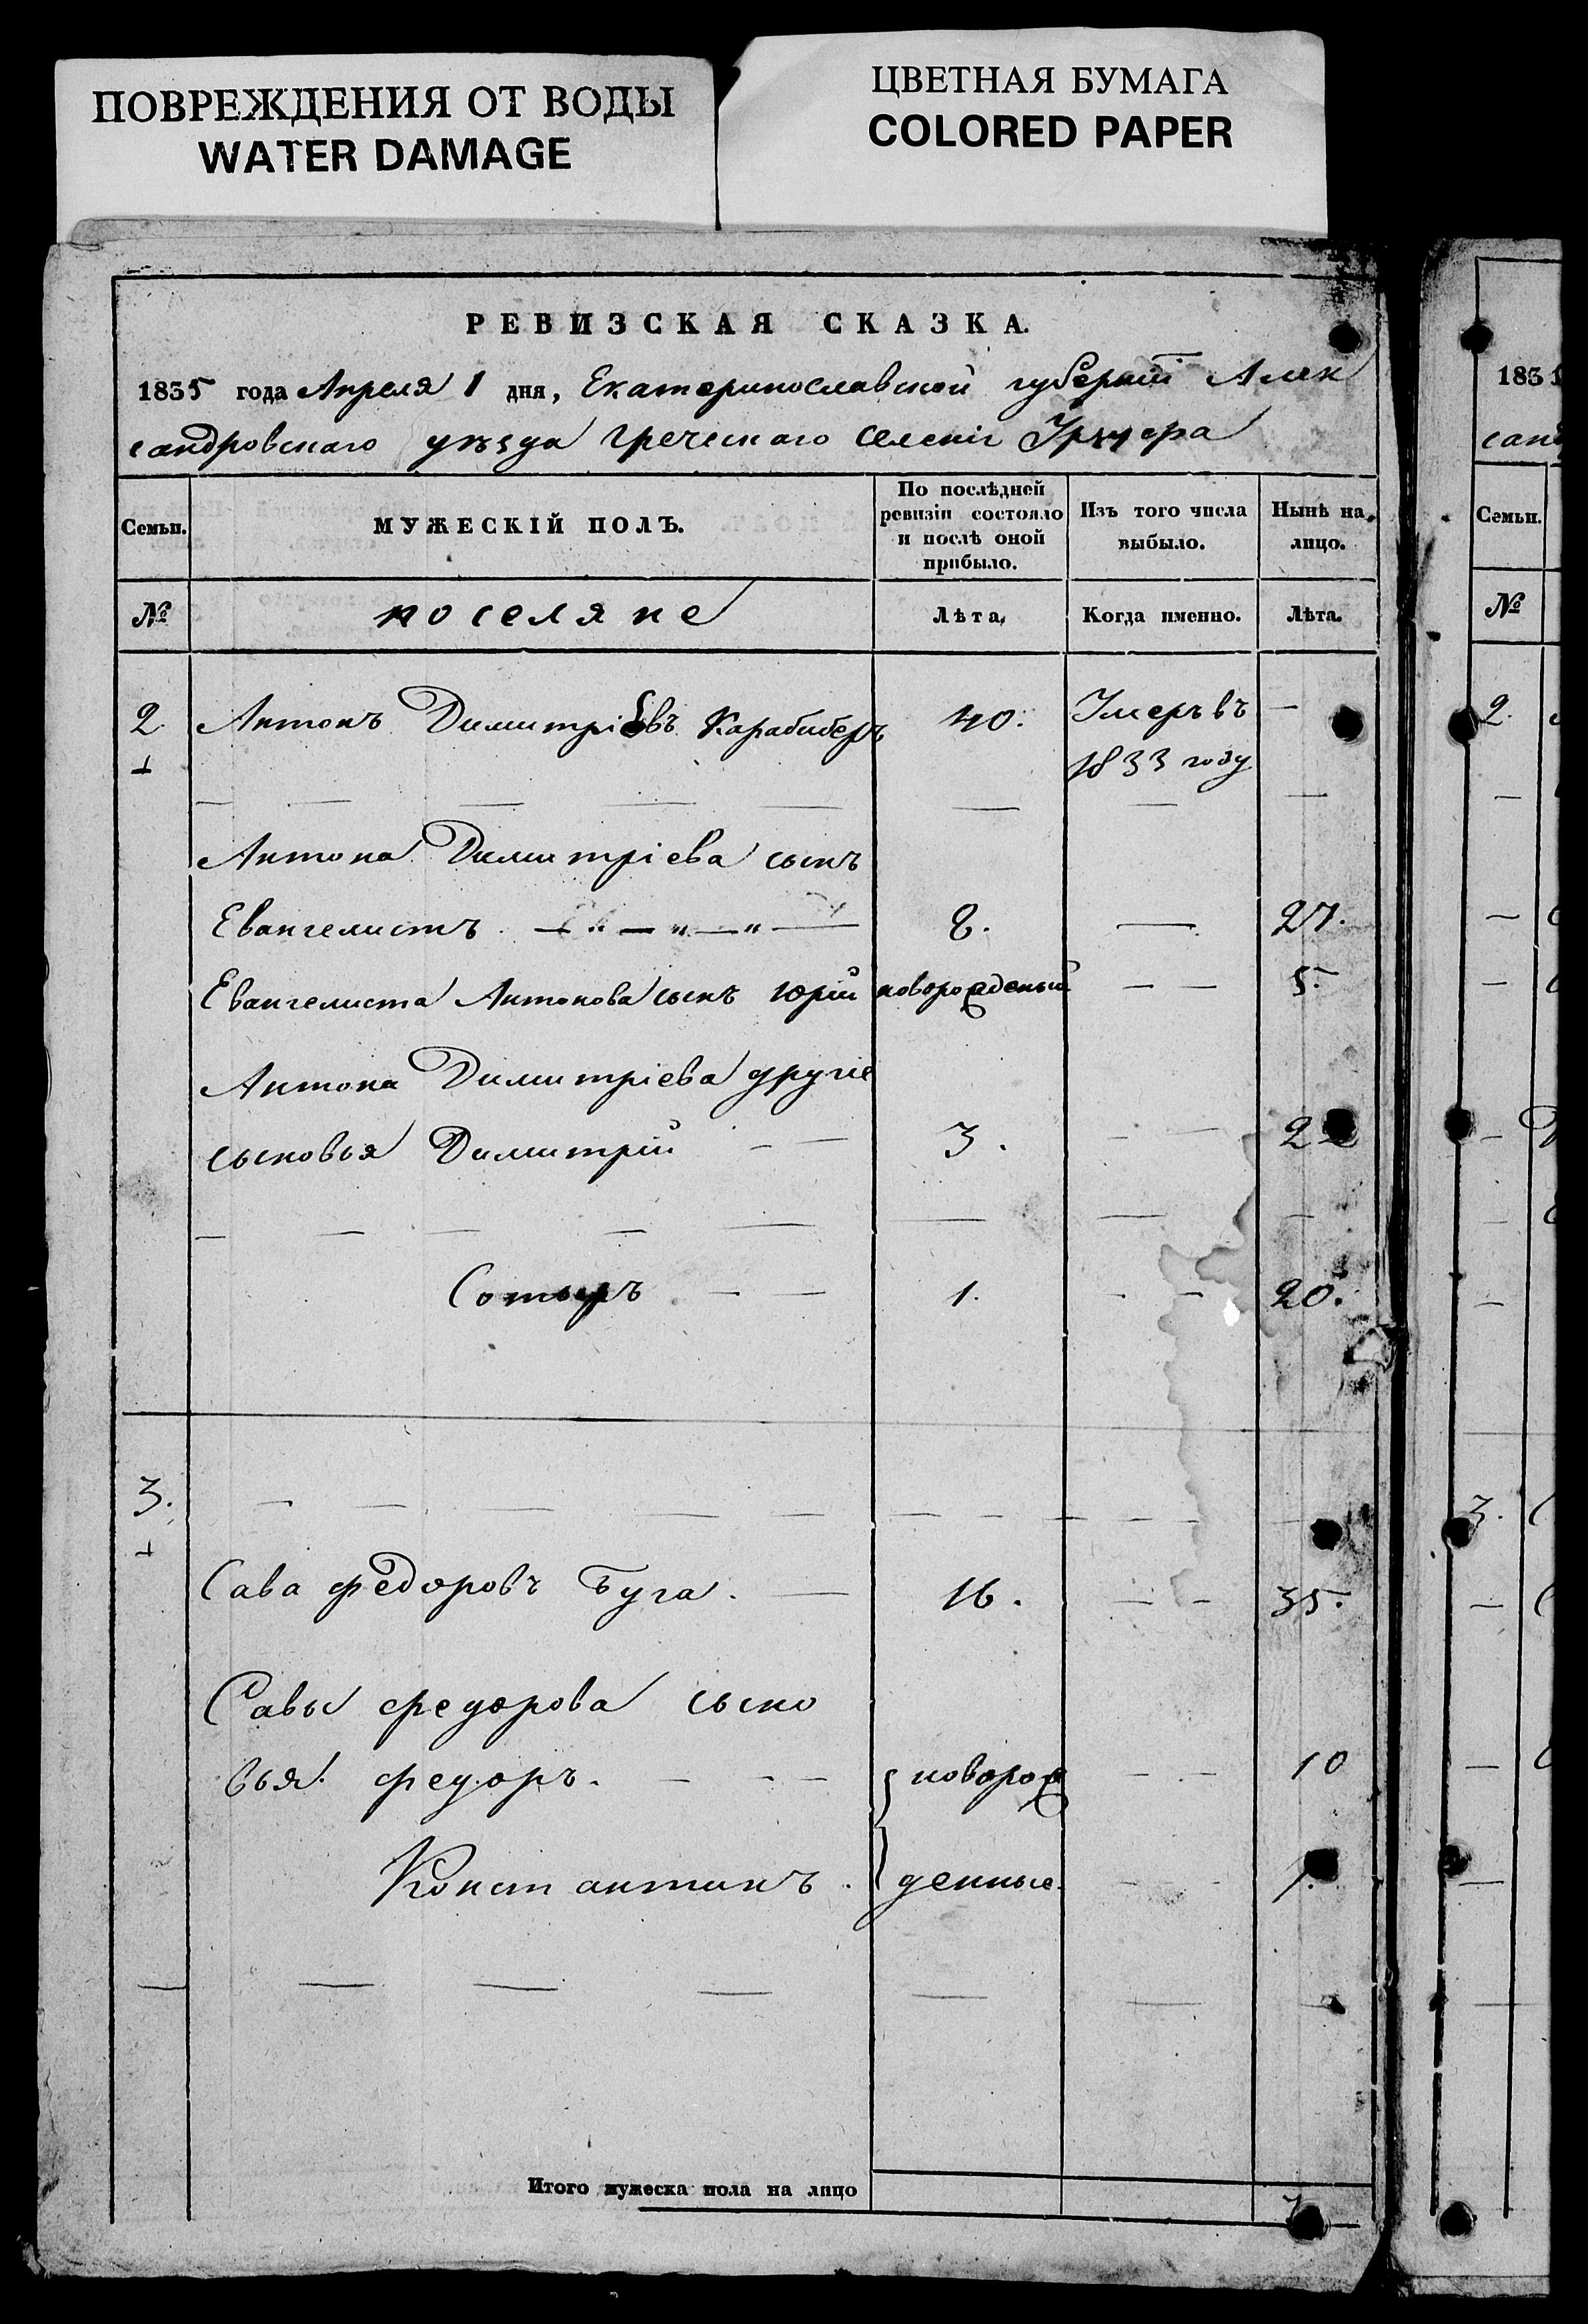 ПОВРЕЖДЕНИЯ ОТ ВОДЫ
WATER DAMAGE
ЦВЕТНАЯ БУМАГА
COLORED PAPER
РЕВИЗСКАЯ СКАЗКА.
1835 года Апреля 1 дня, Екатеринославской губернiи Алек
сандровскаго уѣзда греческаго селенiе
Семьи. МУЖЕСКІЙ ПОЛЪ. По послѣдней ревизіи состояло и послѣ оной прибыло. Изъ того числа выбыло. Нынѣ на лицо.
№ поселяне Лѣта. Когда именно. Лѣта.
2 Антонъ Димитріевъ Карабиберъ 40. Умеръ въ —
1833 году
Антона Димитріева сынъ
Евангелистъ — " — " — " — 8. — 27.
Евангелиста Антонова сынъ Юрій новорожденый — — 5.
Антона Димитріева другіе
сыновья Димитрій — — 3. — — 2
Сотыръ — — 1. - — 20.
3.
Сава Федоровъ Буга. — 16. — - 35.
Савы Федорова сыно
вья. Федоръ. — - — } новорож — - — 10
Константинъ. } денные. 7.
Итого мужеска пола на лицо 7
1835
санд
Семьи.
№
2.
3.